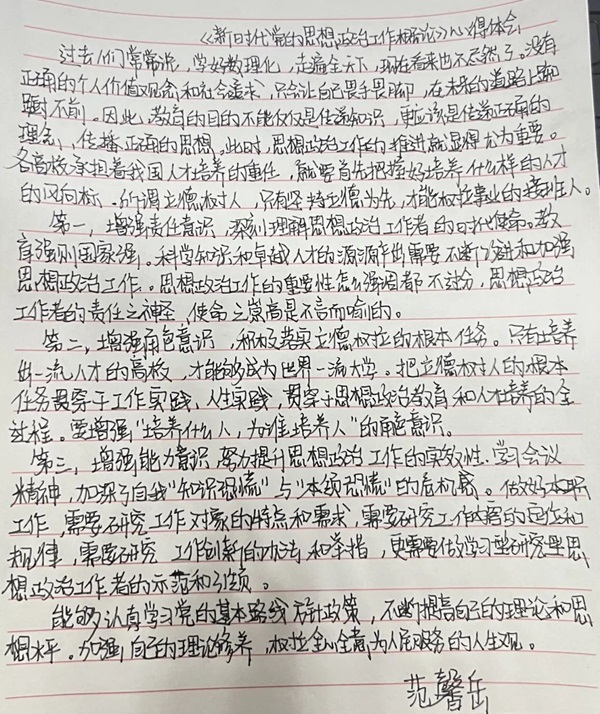 《新时代党的思想政治工作概论》心得体会
过去人们常常说，学好数理化，走遍全天下，现在看来也不尽然了。没有
正确的个人价值观念和社会追求，只会让自己畏手畏脚，在未来的道路上踟
蹰不前。因此，教育的目的不能仅仅是传递知识，更应该是传递正确的
理念，传播正确的思想。此时，思想政治工作的推进就显得尤为重要。
各高校承担着我国人才培养的重任，就要首先把握好培养什么样的人才
的风向标。所谓立德树人，只有坚持立德为先，才能树立事业的接班人。
第一，增强责任意识，深刻理解思想政治工作者的时代使命。教
育强则国家强。科学知识和卓越人才的源源产出需要不断改进和加强
思想政治工作。思想政治工作的重要性怎么强调都不过分，思想政治
工作者的责任之神圣，使命之崇高是不言而喻的。
第二，增强角色意识，积极落实立德树立的根本任务。只有培养
出一流人才的高校，才能够成为世界一流大学。把立德树人的根本
任务贯穿于工作实践、人生实践，贯穿于思想政治教育和人才培养的全
过程。要增强"培养什么人，为谁培养人"的角色意识。
第三，增强能力意识，努力提升思想政治工作的实效性。学习会议
精神，加深了自我"知识恐慌"与"本领恐慌"的危机感。做好本职
工作，需要研究工作对象的特点和需求，需要研究工作内容的定位和
规律，需要研究工作创新的办法和举措，更需要做学习型研究型思
想政治工作者的示范和引领。
能够认真学习党的基本路线方针政策，不断提高自己的理论和思
想水平。加强自己的理论修养，树立全心全意为人民服务的人生观。
范馨岳